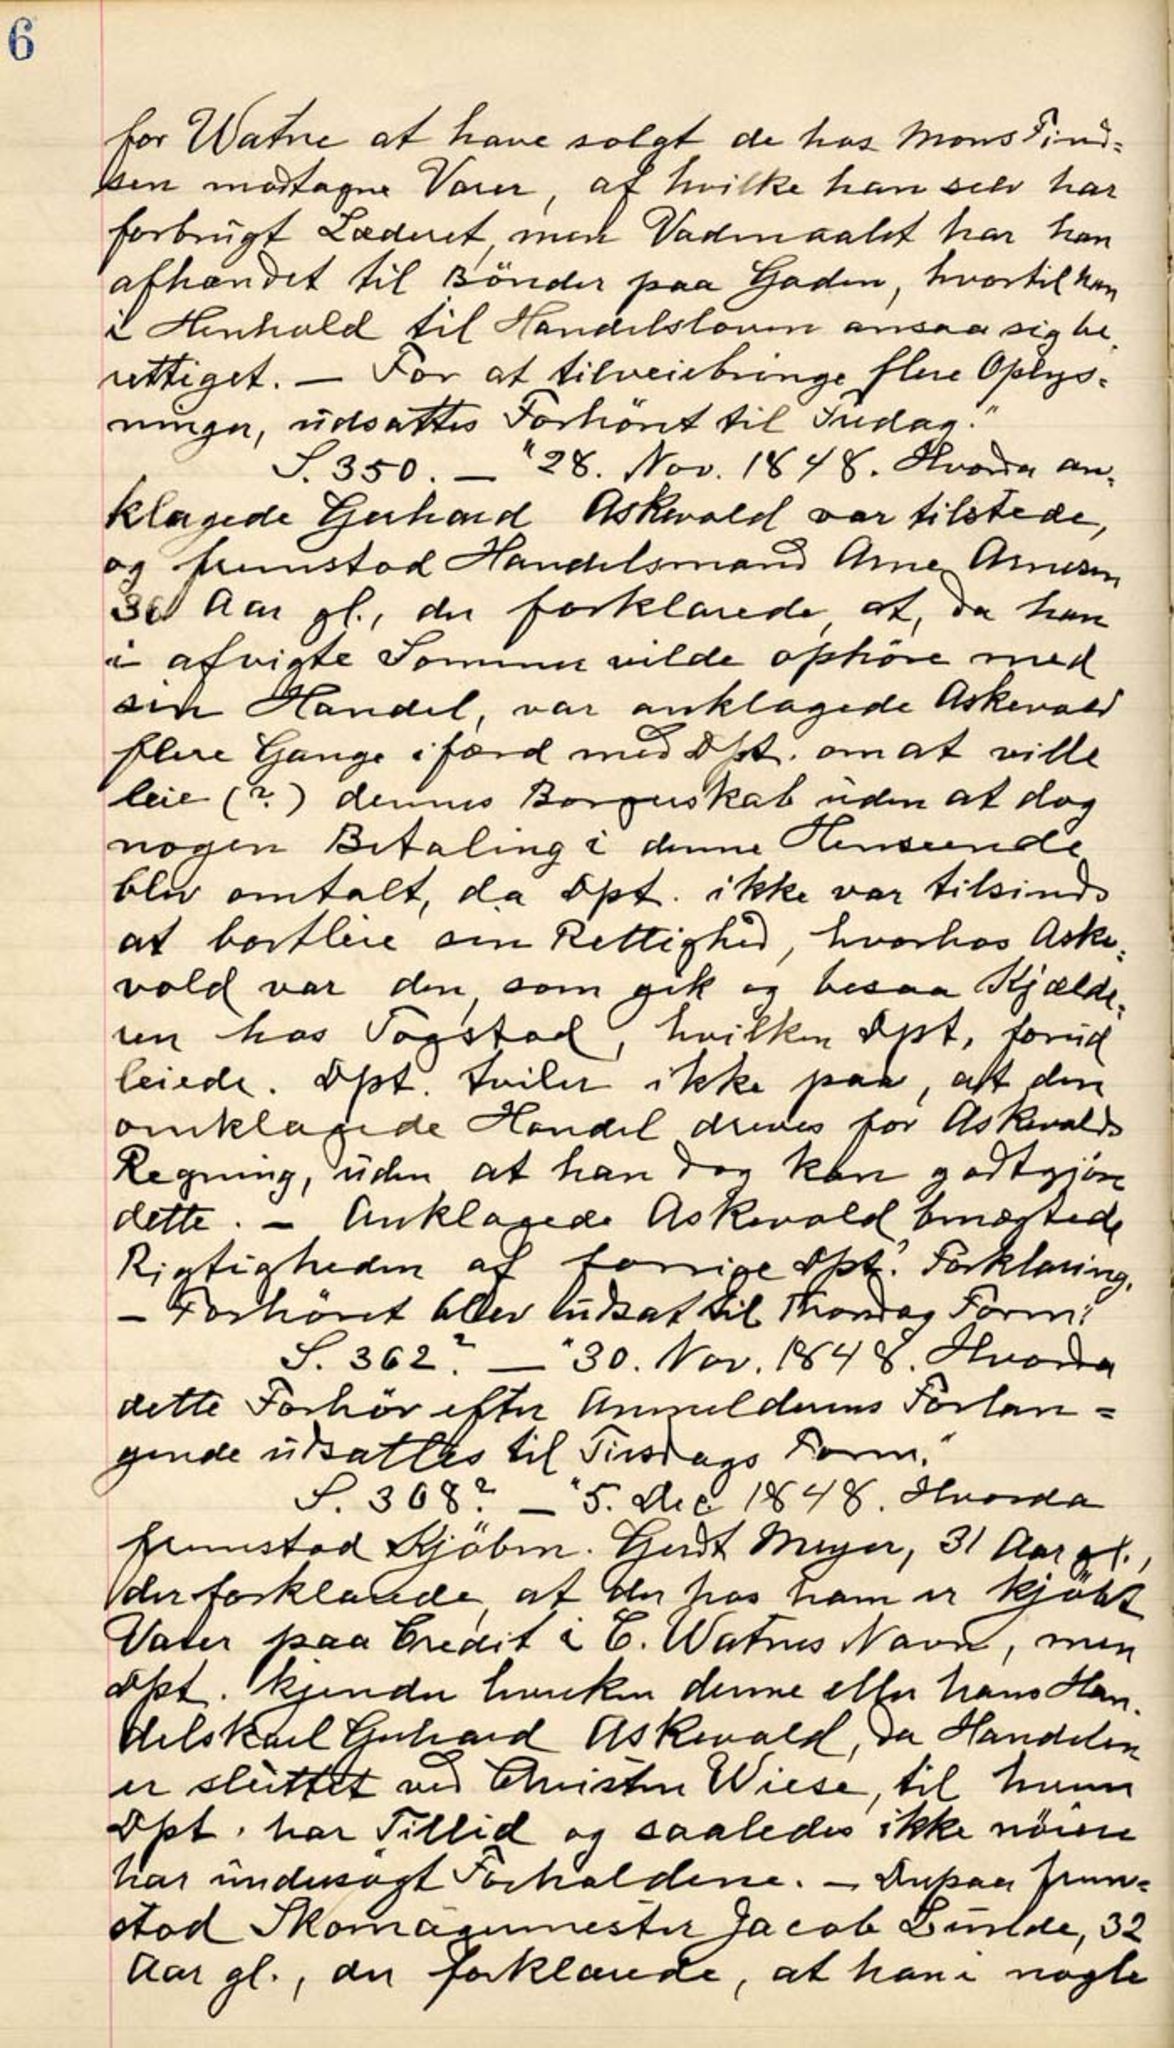 6
for Watne at have solgt de hos Mons Find=
sen modtagne Varer, af hvilke han selv har
forbrugt Læderet, men Vadmaalet har han
afhændet til Bönder paa Gaden, hvortil han
i Henhold til Handelsloven ansaa sig be-
rettiget. — For at tilveiebringe flere Oplys=
ninger, udsattes Forhöret til Tirsdag."
S. 350. — "28. Nov. 1848. Hvorda an-
klagede Gerhard Askevold var tilstede,
og fremstod Handelsmand Arne Arnesen
36 Aar gl., der forklarede, at, da han
i afvigte Sommer vilde ophöre med
sin Handel, var anklagede Askevold
flere Gange ifærd med Dpt. om at ville
leie (?) dennes Borgerskab uden at dog
nogen Betaling i denne Henseende
blev omtalt, da Dpt. ikke var tilsinds
at bortleie sin Rettighed, hvorhos Aske=
vold var den, som gik og besaa Kjælde=
ren hos Fogstad, hvilken Dpt. forud
leiede. Dpt. tviler ikke paa, at den
omklagede Handel dreves for Askevolds
Regning, uden at han dog kan godtgjöre
dette. — Anklagede Askevold benægtede
Rigtigheden af forrige Dpt.' Forklaring.
— Forhöret blev udsat til Thorsdag Form."
S. 362? — "30. Nov. 1848. Hvorda
dette Forhör efter Anmelderens Forlan=
gende udsattes til Tirsdags Form."
S. 368? — "5. Dec 1848. Hvorda
fremstod Kjöbm. Gerdt Meyer, 31 Aar gl.,
der forklarede, at der hos ham er kjöbt
Varer paa Credit i C. Watnes Navn, men
Dpt. kjender hverken denne eller hans Han-
delskarl Gerhard Askevold, da Handelen
er sluttet ved Christen Wiese, til hvem
Dpt. har Tillid og saaledes ikke nöiere
har undersögt Forholdene. — Derpaa frem=
stod Skomagermester Jacob Lunde, 32
Aar gl., der forklarede, at han i nogle